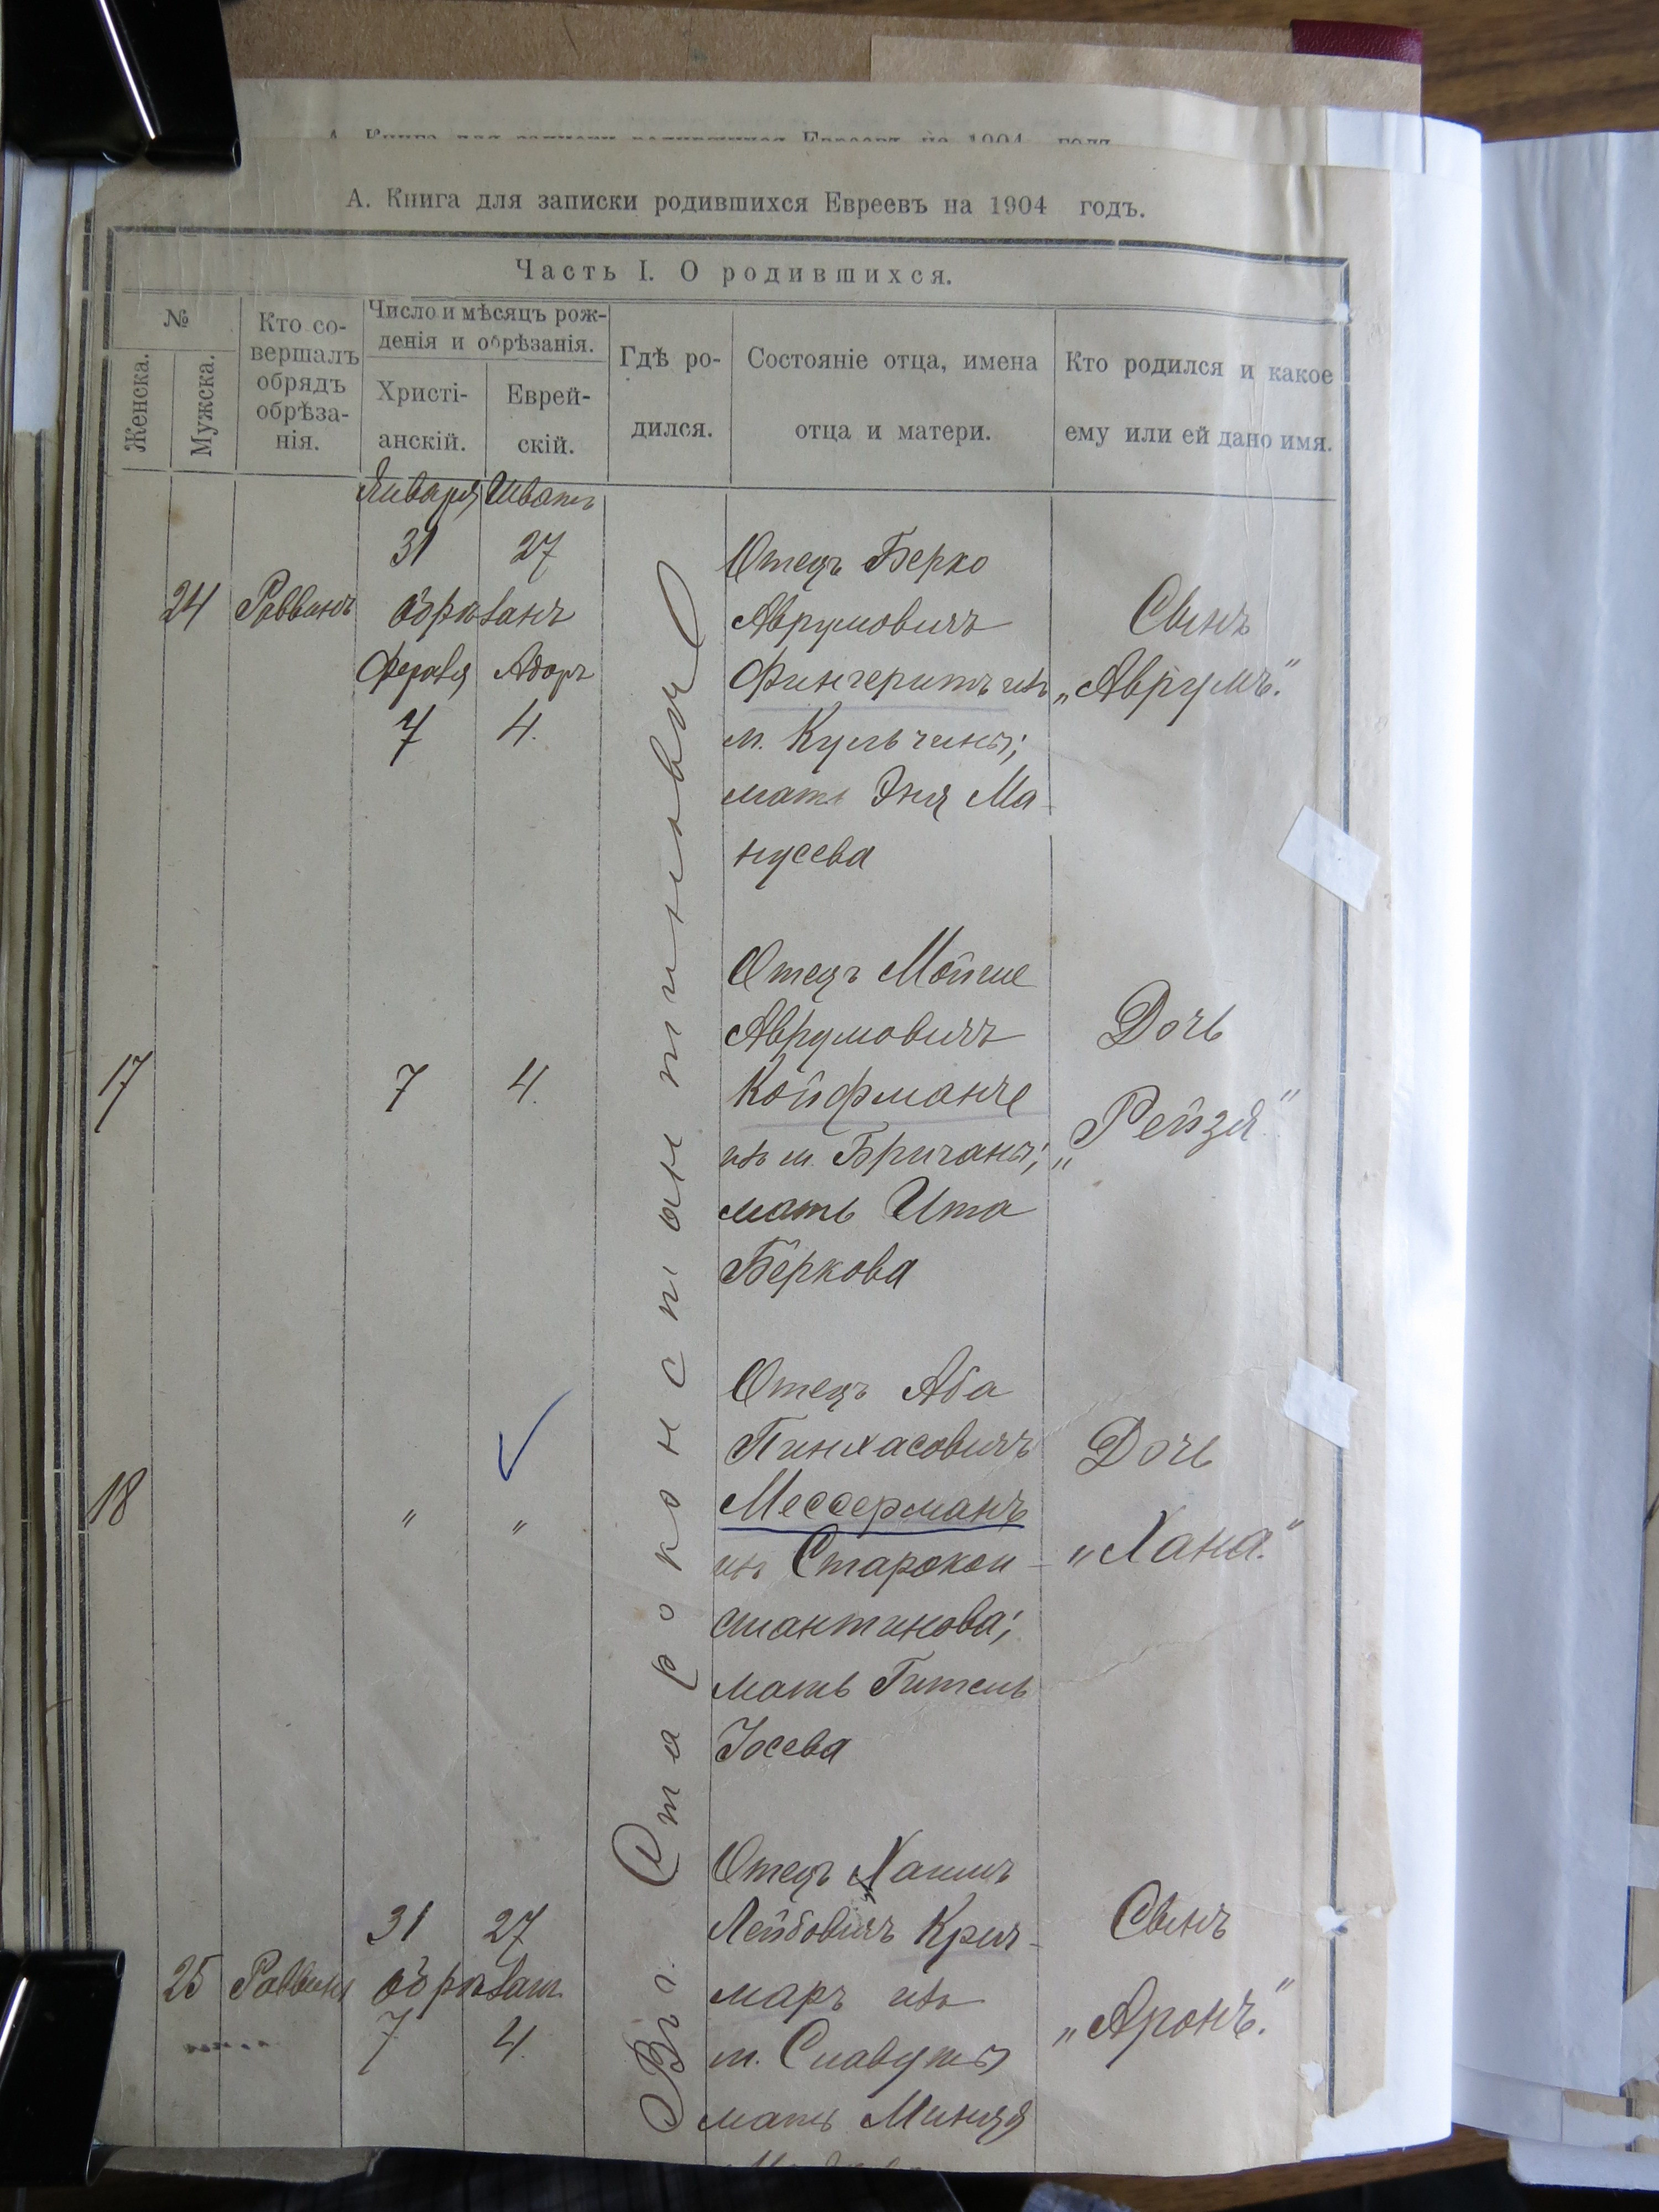 А. Книга для записки родившихся Евреевъ на 1904 годъ.
А. Книга для записки родившихся Евреевъ на 1904 годъ.
Часть I. О родившихся.
№
Женска.
Мужска.
Кто со-
вершалъ
обрядъ
обрѣза-
нія.
Число и мѣсяцъ рож-
денія и обрѣзанія.
Христі-
анскій.
Еврей-
скій.
Гдѣ ро-
дился.
Состояніе отца, имена
отца и матери.
Кто родился и какое
ему или ей дано имя.
Января Шватъ
31 27
24 Раввинъ обрѣзанъ
Февраля Адаръ
7 4.
Въ г. Староконстантиновѣ
Отецъ Берко
Аврумовичъ
Фингеритъ изъ
м. Кульчины;
мать Эня Ма-
нусева
Сынъ
„Аврумъ."
17
7 4.
Отецъ Мойше
Аврумовичъ
Койфманъ
изъ м. Бричаны;
мать Ита
Беркова
Дочь
„Рейзя."
18
" "
Отецъ Аба
Пинхасовичъ
Мессерманъ
изъ Старокон-
стантинова;
мать Гитель
Іосева
Дочь
„Хана."
31 27
25 Раввинъ обрѣзан
7 4.
Отецъ Хаимъ
Лейбовичъ Крич-
маръ изъ
м. Славуты
мать Минця
Сынъ
„Аронъ."